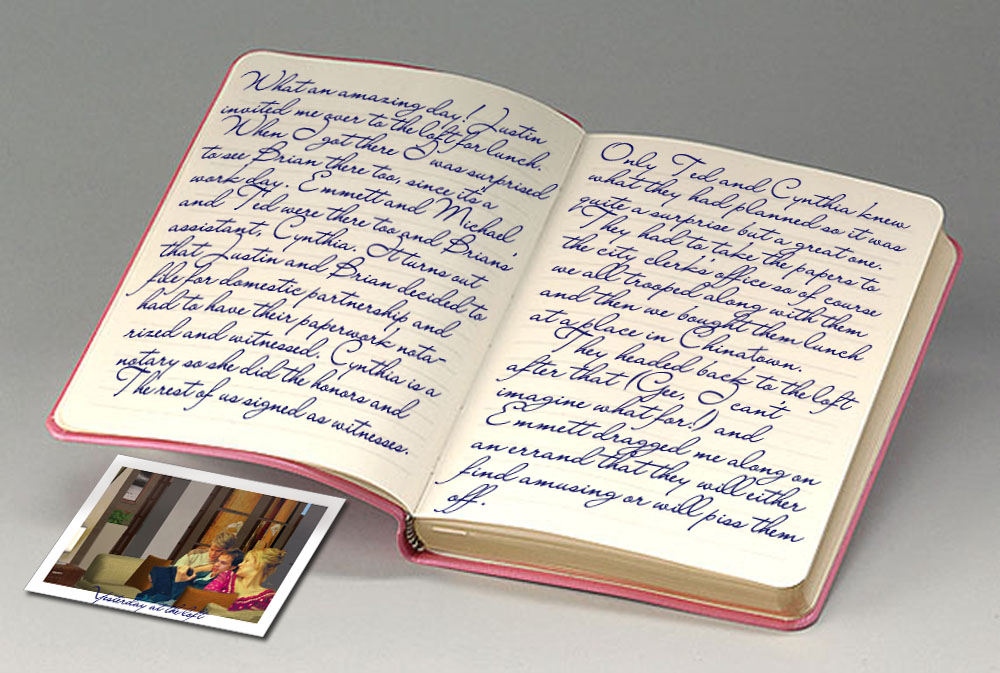 What an amazing day! Justin
invited me over to the loft for lunch.
When I got there I was surprised
to see Brian there too, since it's a
work day. Emmett and Michael
and Ted were there too and Brians'
assistant, Cynthia. It turns out
that Justin and Brian decided to
file for domestic partnership and
had to have their paperwork nota-
rized and witnessed. Cynthia is a
notary so she did the honors and
The rest of us signed as witnesses.
Only Ted and Cynthia knew
what they had planned so it was
quite a surprise but a great one.
They had to take the papers to
the city clerk's office so of course
we all trooped along with them
and then we bought them lunch
at a place in Chinatown.
They headed back to the loft
after that (Gee, I can't
imagine what for!) and
Emmett dragged me along on
an errand that they will either
find amusing or will piss them
off.
Yesterday at the loft